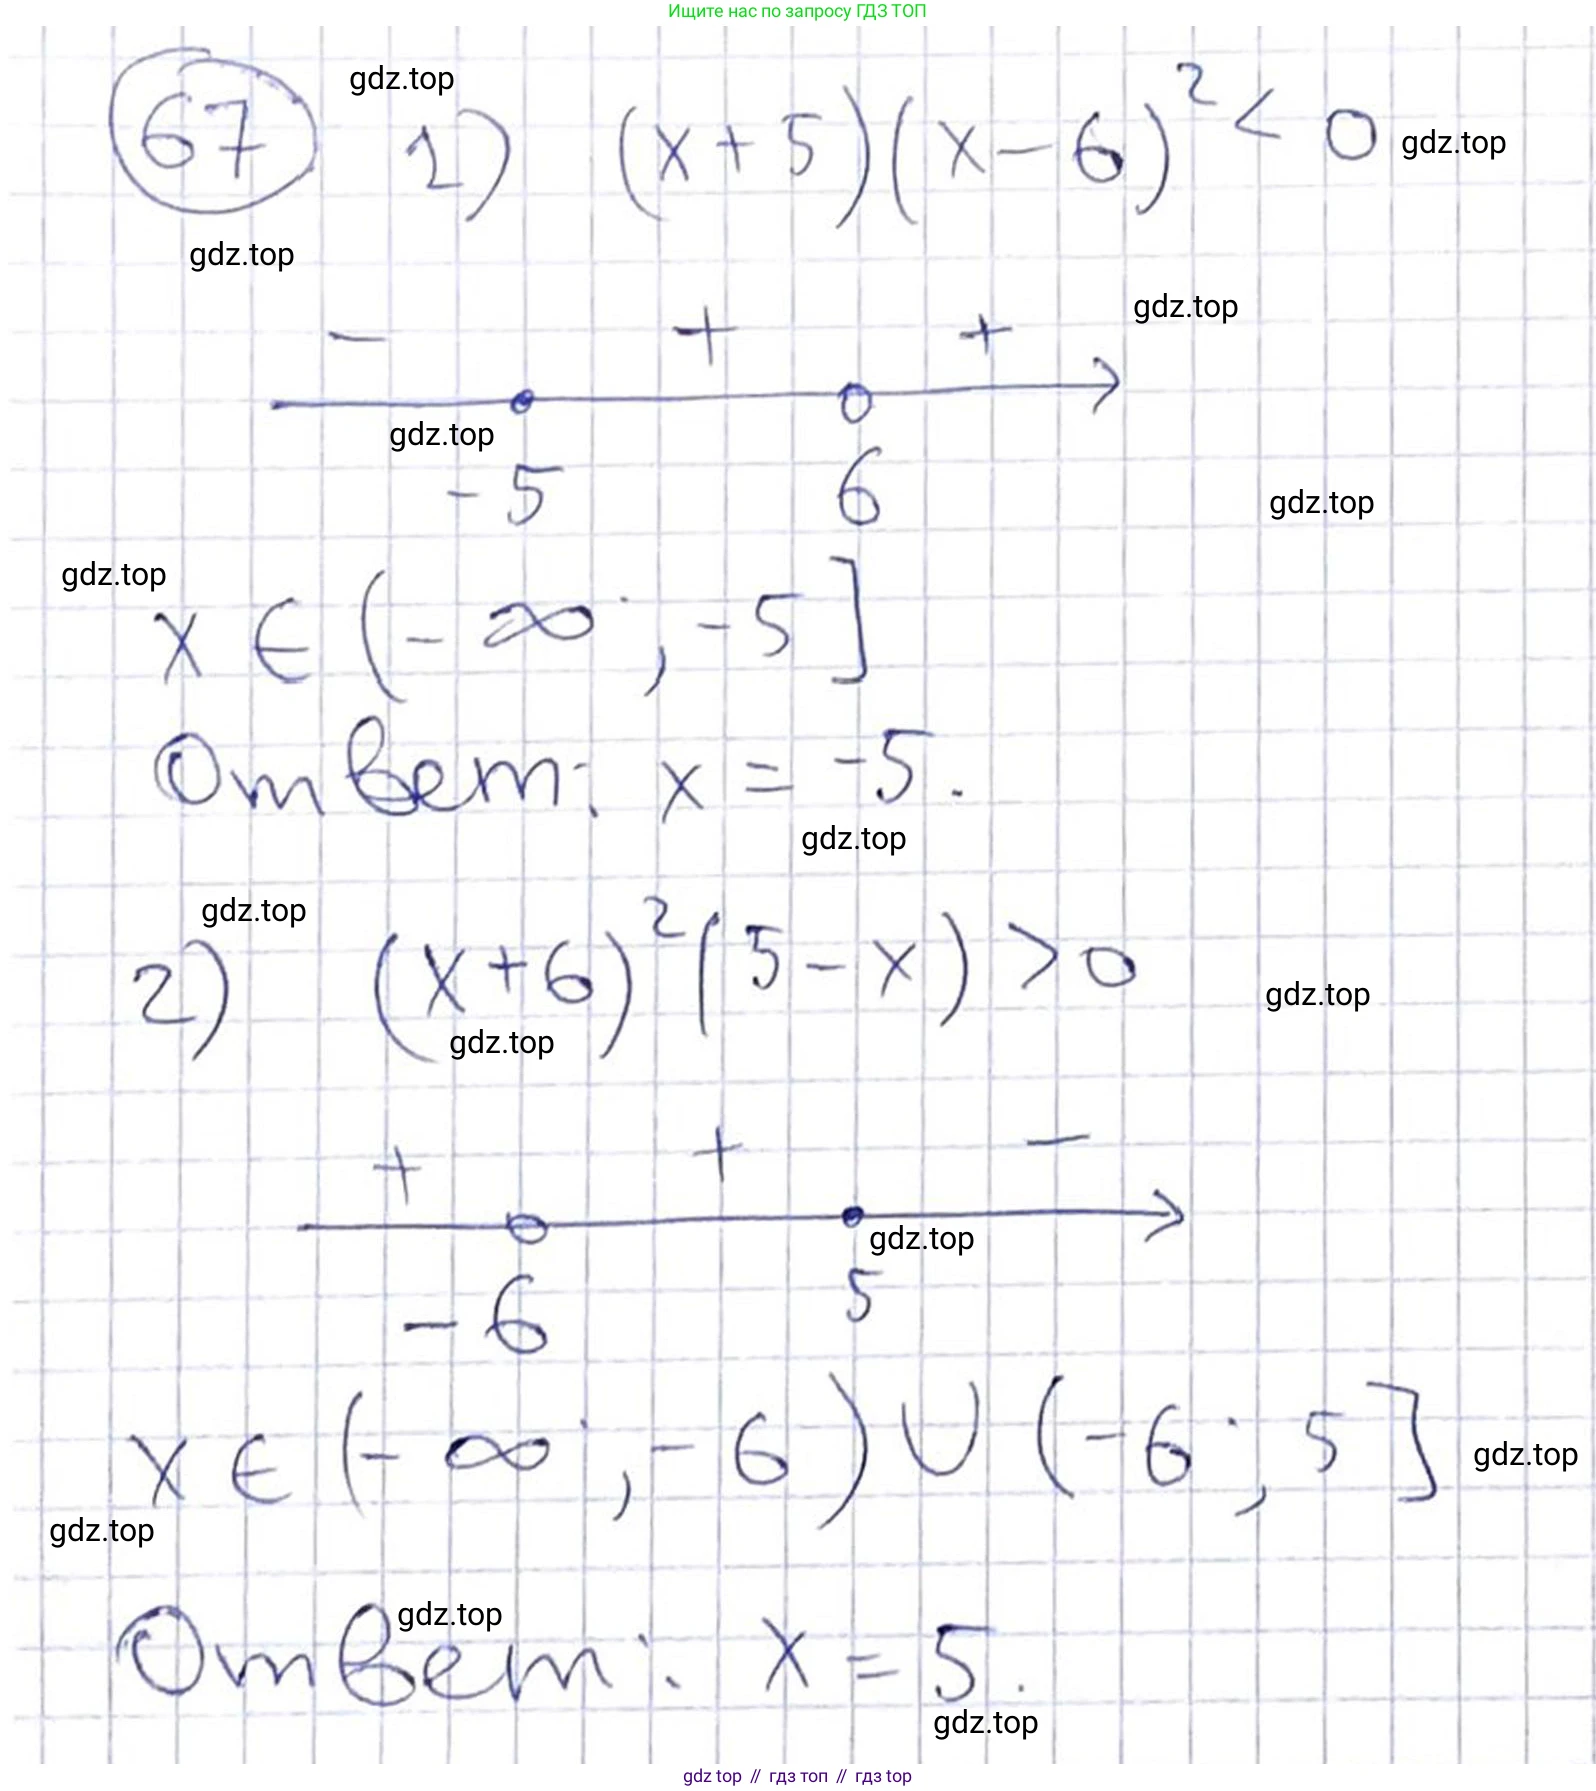 Ищите нас по запросу ГДЗ ТОП
gdz.top
67 1) (x+5)(x-6)² < 0 gdz.top
gdz.top
gdz.top
- + +
gdz.top
-5 6
gdz.top
gdz.top
x ∈ (-∞; -5]
Ответ: x = -5.
gdz.top
gdz.top
2) (x+6)²(5-x) > 0
gdz.top
gdz.top
+ + -
gdz.top
-6 5
x ∈ (-∞; -6) ∪ (-6; 5] gdz.top
gdz.top
gdz.top
Ответ: x = 5.
gdz.top
gdz top // гдз топ // гдз top